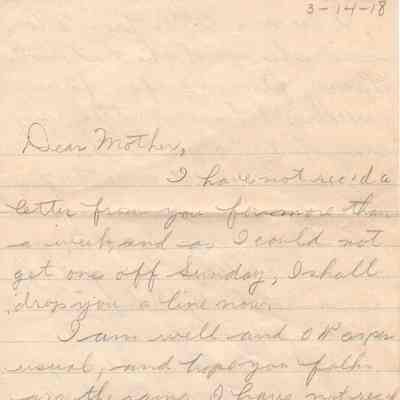 3-14-18
Dear Mother,
I have not rec'd a
letter from you for more than
a week, and as I could not
get one off Sunday, I shall
drop you a line now.
I am well and OK as per
usual, and hope you folks
are the same. I have not rec'd